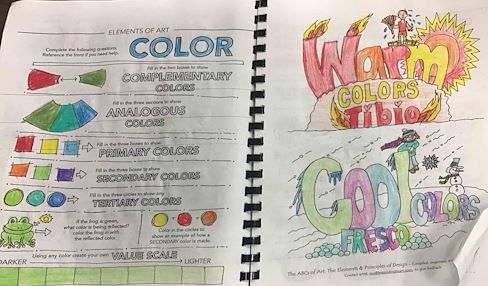 ELEMENTS OF ART
COLOR
Complete the following questions.
Reference the front if you need help.
Fill in the two boxes to show
COMPLEMENTARY
COLORS
Fill in the three sections to show
ANALOGOUS
COLORS
Fill in the three boxes to show
PRIMARY COLORS
Fill in the three boxes to show
SECONDARY COLORS
Fill in the three circles to show any
TERTIARY COLORS
If the frog is green,
what color is being reflected?
color the frog in with
the reflected color.
Color in the circles to
show an example of how a
SECONDARY color is made.
Using any color create your own VALUE SCALE
DARKER
LIGHTER
Warm
COLORS
Tibio
Cool
COLORS
FRESCO
The ABCs of Art: The Elements & Principles of Design - Compiled, organized
to give feedback